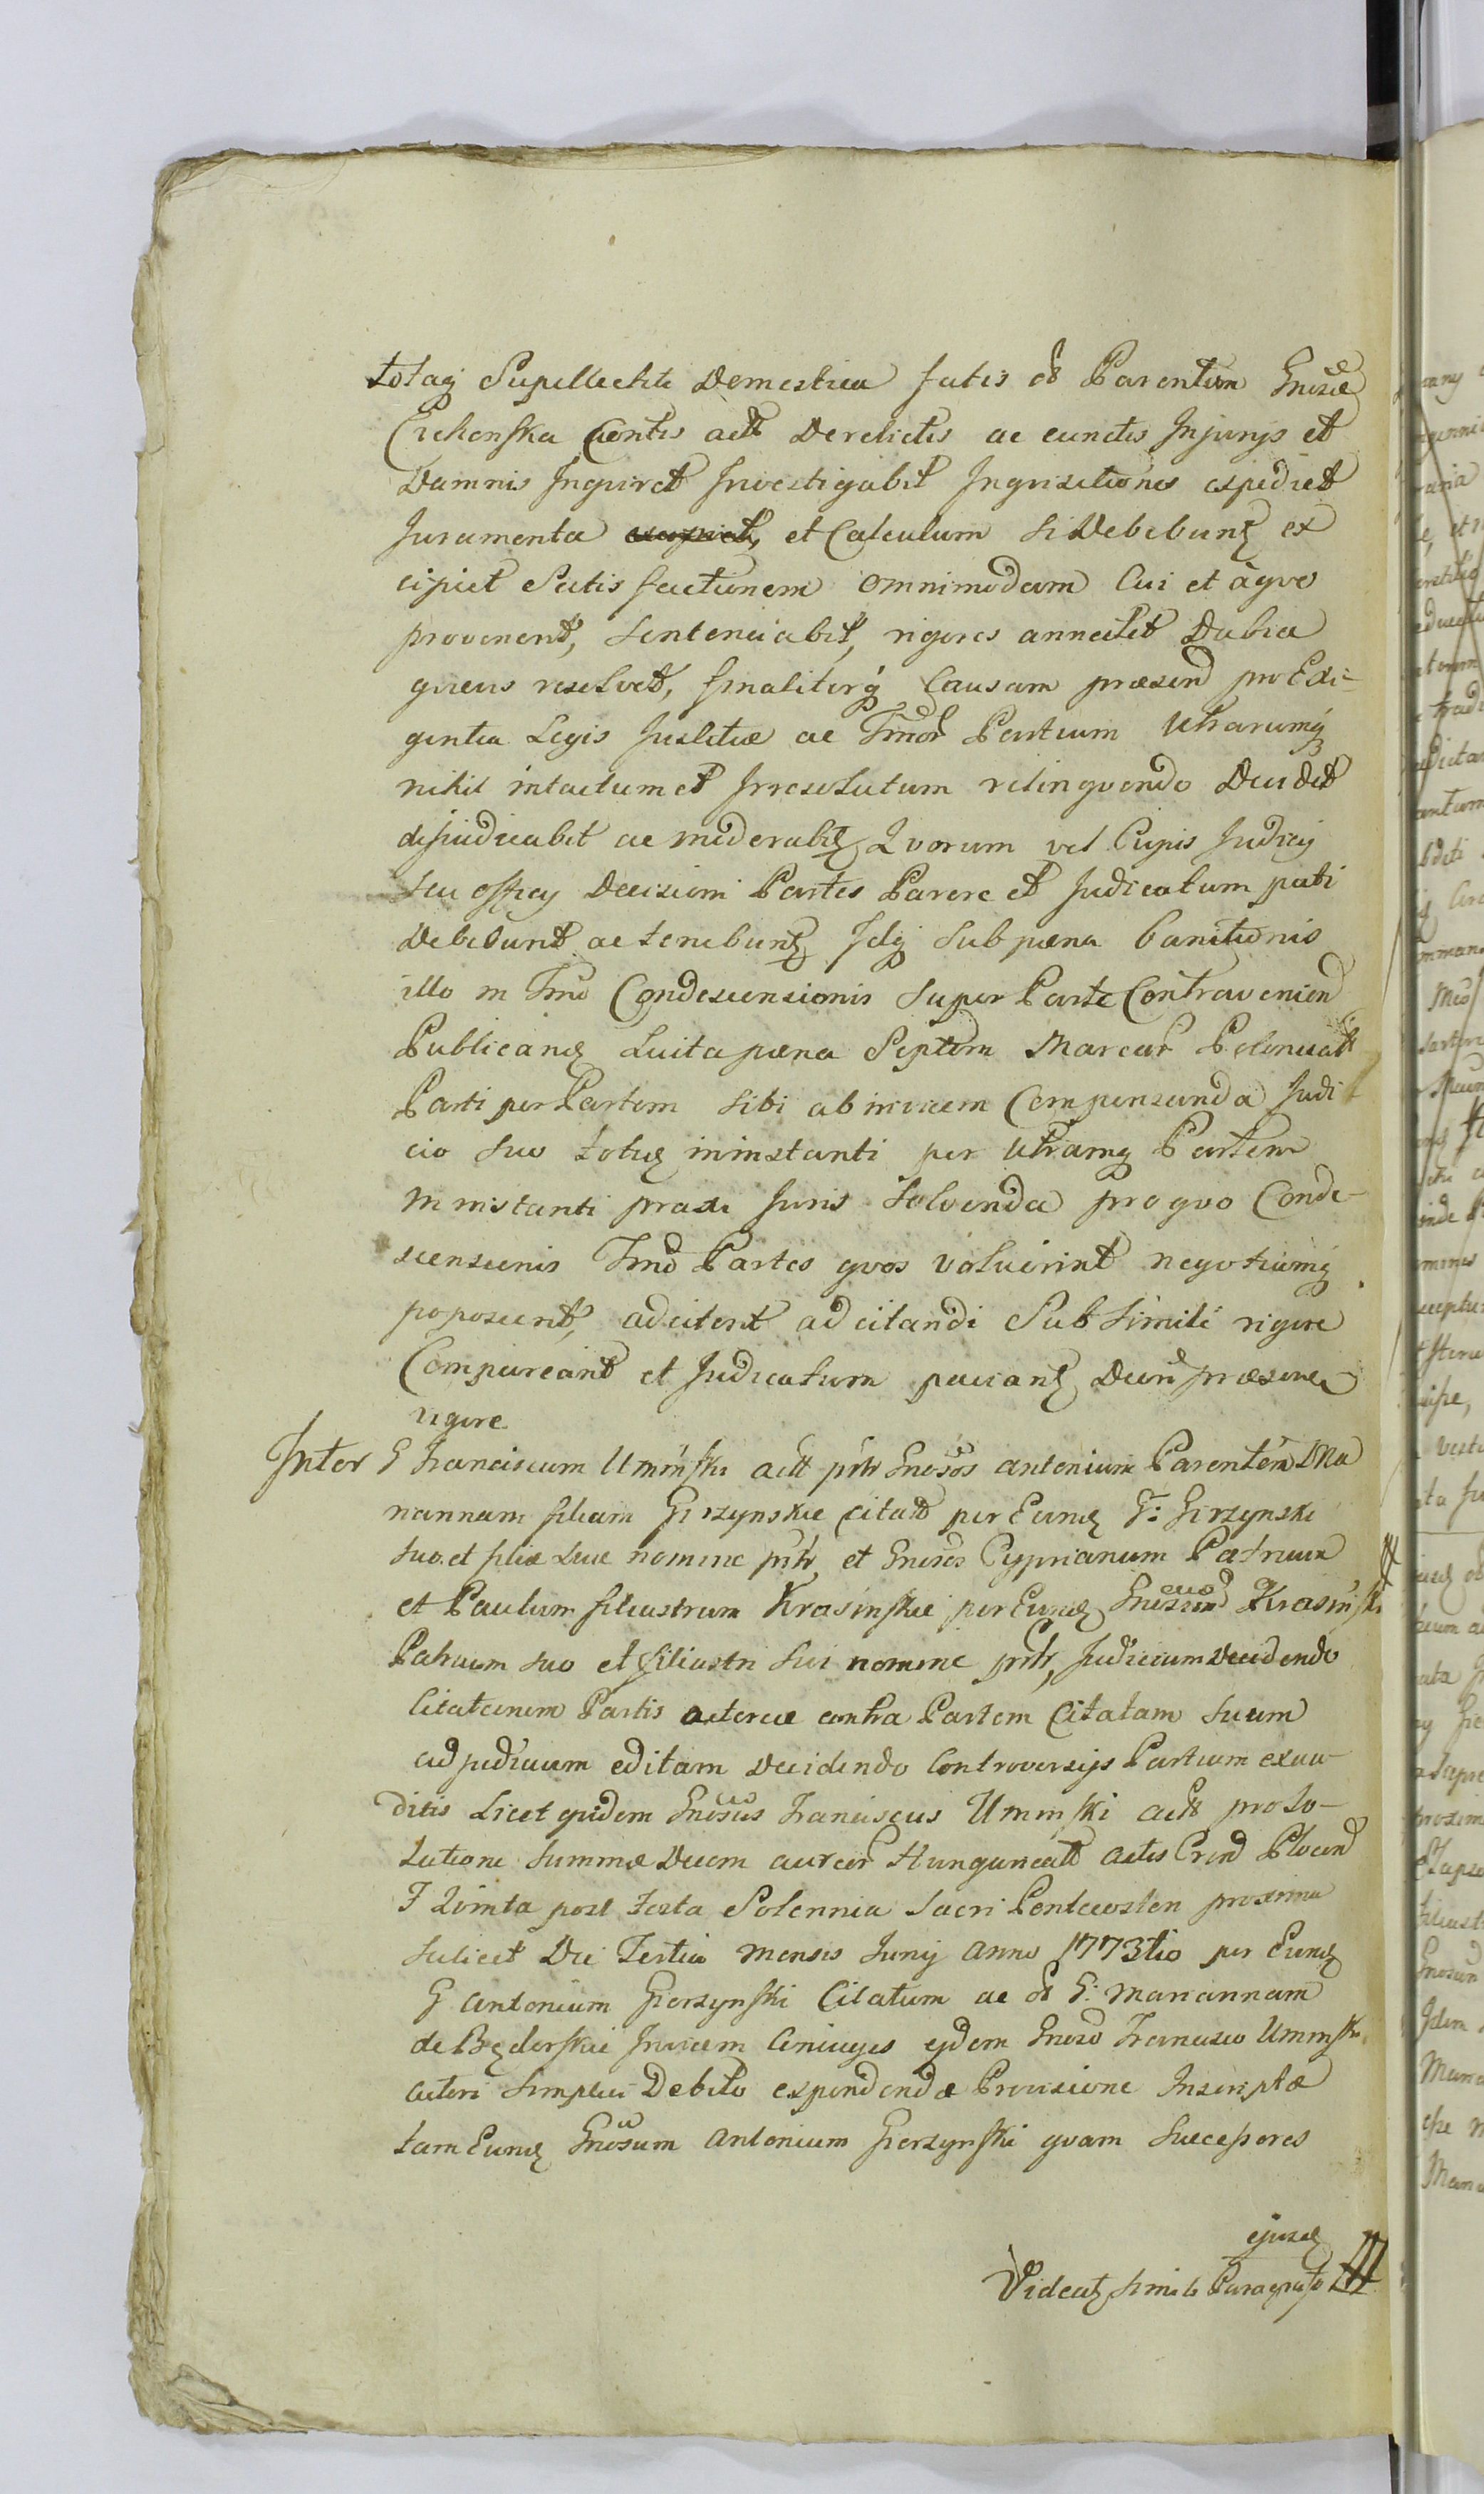 totaq Supellectili Domestica fatis olt Parentum Gnosae
Ciehenska Cientis actt Derelictis ac cunctis Injurijs et
Damnis Inquiret Investigabit Inquisitiones expediet
Juramenta excipiet, et Calculum si Debebunt ex
cipiet Satisfactionem omnimodam Cui et àquo
provenerit, Sentenciabit, rigores annectet Dubia
quevis resolvet, finaliterq Causam praesen pro Exi-
gentia Legis Justitiae ac Tmor Partium Utrarumq
nihil intactum et Irresolutum relinquendo Decidet
dijudicabit ac moderabit Quorum vel Cujus Judicij
seu officij Decisioni Partes Parere et Judicatum pati
Debebunt ac tenebunt Idq sub paena banitionis
illo in Tmo Condescensionis super Parte Contravenien
Publicand Luita paena Septem Marcar Polonicalt
Parti per Partem sibi ab invicem Compensanda Judi
cio suo totid ininstanti per Utramq Partem
ininstanti praxi Juris Solvenda pro quo Conde-
scensionis Tmo Partes quos voluerint negotiumq
poposcerit, adcitent adcitandi Sub simili rigore
Compareant et Judicatum paciant Decr praesentis
rigore
Inter G Franciscum Uminski actt prtr Gnosos Antonium Parentem Ma
riannam filiam Gierzynskie Citatt per Eund G: Gierzynski
suo et filiae suae nomine prtr, et Gnosos Cyprianum Patruum
et Paulum filiastrum Krasinskie per Eund Gnosum Krasinski
Patruum suo et filiastri sui nomine prtr, Judicium Decidendo
Citationem Partis actoreae contra Partem Citatam suum
ad judicium editam Decidendo Controversijs Partium exau-
ditis Licet quidem Gnosus Franciscus Uminski actt pro so-
lutione Summae Decem aureor Hungaricalt actis Cren Plocen
F Quinta post festa Solennia Sacri Pentecosten proxima
scilicet Die Tertia mensis Junij Anno 1773tio per Eund
G Antonium Gierzynski Citatum ac olt G: Mariannam
de Będerskie Invicem Coniuges ejdem Gnoso Francisco Uminski
actori Simplici Debito expendendae Provisione Inscriptae
tam Eund Gnosum Antonium Gierzynski quam Successores
ejusd
Videat simile Paragrafo